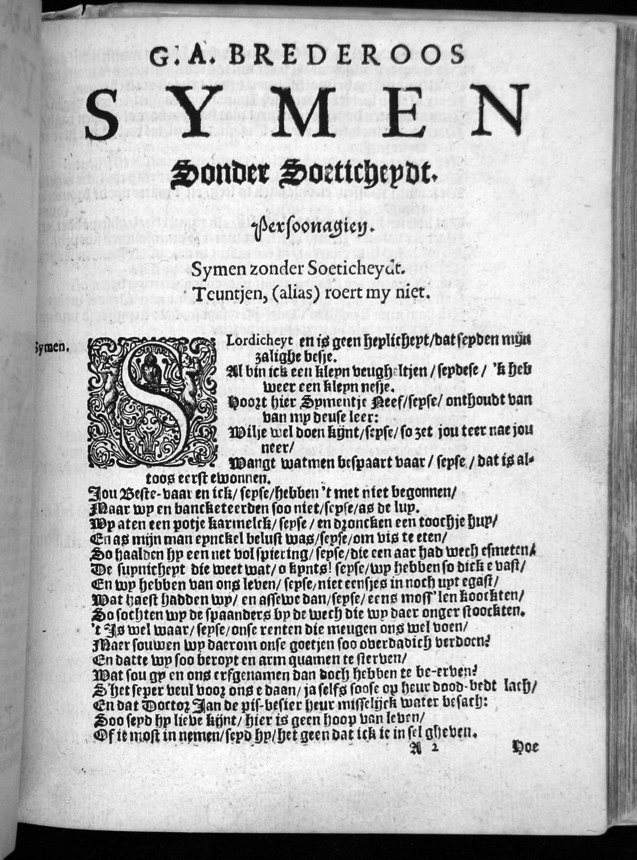 G. A. BREDEROOS
SYMEN
Sonder Soeticheydt.
Persoonagien.
Symen zonder Soeticheydt.
Teuntjen, (alias) roert my niet.
Symen.
SLordicheyt en is geen heylicheyt/dat seyden mijn
zalighe besje.
Al bin ick een kleyn veugheltjen/seydese/'k heb
weer een kleyn nesje.
Hoort hier Symentje Neef/seyse/onthoudt van
van my deuse leer:
Wilje wel doen kijnt/seyse/so zet jou teer nae jou
neer/
Wangt watmen bespaart vaar/seyse/dat is al-
toos eerst ewonnen.
Jou Beste-vaar en ick/seyse/hebben 't met niet begonnen/
Maar wy en bancketeerden soo niet/seyse/as de luy.
Wy aten een potje karmelck/seyse/en droncken een toochje huy/
En as mijn man eynckel belust was/seyse/om vis te eten/
So haalden hy een net vol spiering/seyse/die een aar had wech esmeten/
De suynicheyt die weet wat/o kynts! seyse/wy hebben so dick e vast/
En wy hebben van ons leven/seyse/niet eensjes in noch uyt egast/
Wat haest hadden wy/en assewe dan/seyse/eens moss'len koockten/
So sochten wy de spaanders by de wech die wy daer onger stoockten.
't Is wel waar/seyse/onse renten die meugen ons wel voen/
Maer souwen wy daerom onse goetjen soo overdadich verdoen?
En datte wy soo beroyt en arm quamen te sterven/
Wat sou gy en ons erfgenamen dan doch hebben te be-erven?
S'het seper veul voor ons e daan/ja selfs soose op heur dood-bedt lach/
En dat Doctor Jan de pis-besier heur misselijck water besach:
Soo seyd hy lieve kijnt/hier is geen hoop van leven/
Of je most in nemen/seyd hy/het geen dat ick je in sel gheven.
A 2 Hoe